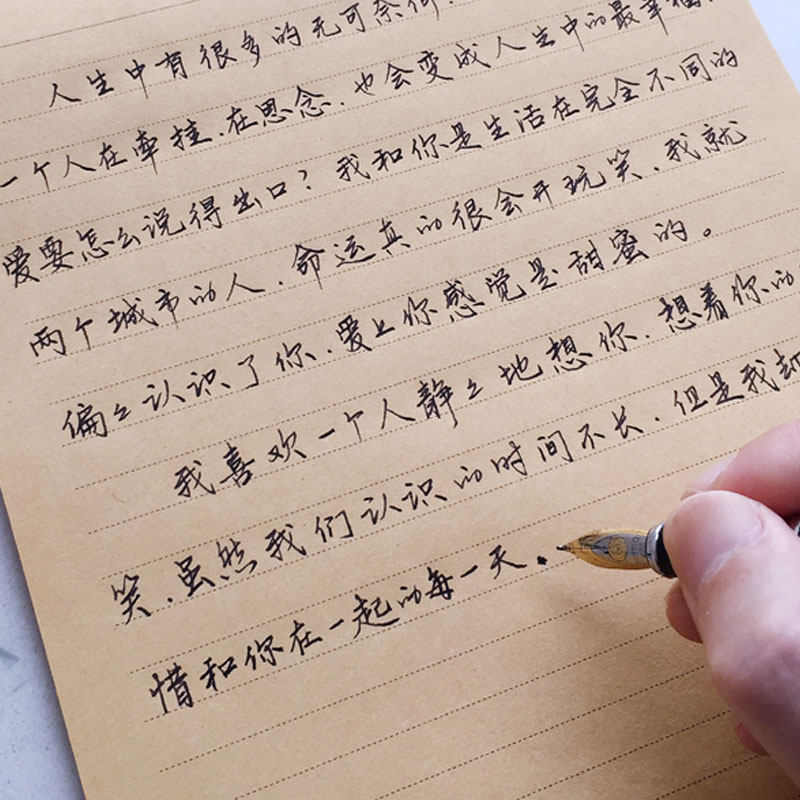 人生中有很多的无可奈何.
一个人在牵挂.在思念.也会变成人生中的最幸福.
爱要怎么说得出口?我和你是生活在完全不同的
两个城市的人.命运真的很会开玩笑.我就
偏偏认识了你.爱上你感觉是甜蜜的。
我喜欢一个人静静地想你.想着你的
笑.虽然我们认识的时间不长.但是我却
惜和你在一起的每一天.